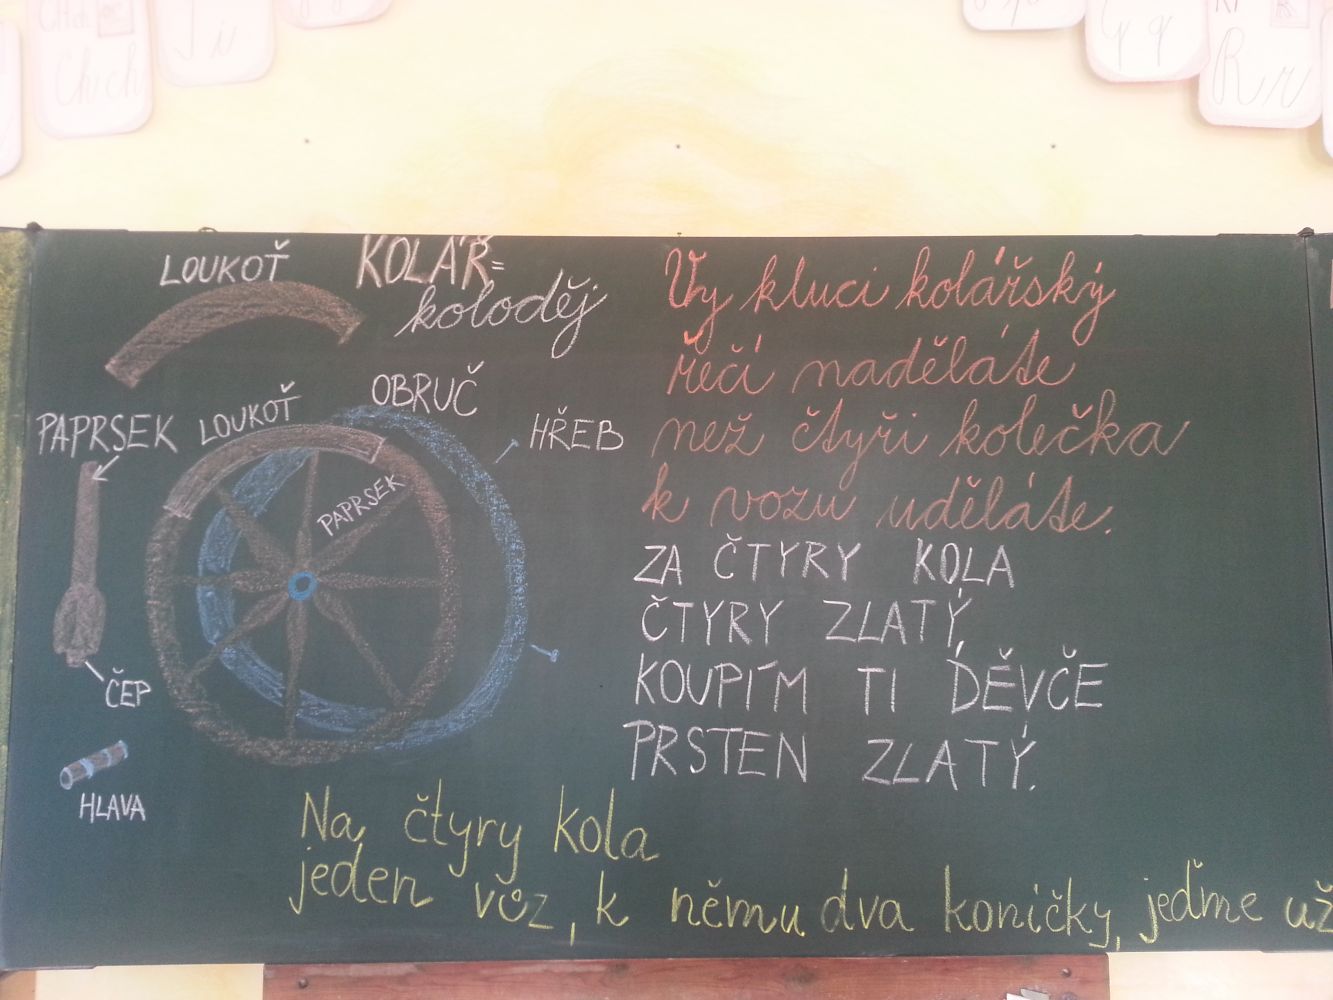 Ch ch
J j
G g
R r
LOUKOŤ
KOLÁŘ=
koloděj
OBRUČ
PAPRSEK
LOUKOŤ
HŘEB
PAPRSEK
ČEP
HLAVA
Vy kluci kolářský
řečí naděláte
než čtyři kolečka
k vozu uděláte.
ZA ČTYRY KOLA
ČTYRY ZLATÝ,
KOUPÍM TI DĚVČE
PRSTEN ZLATÝ.
Na čtyry kola
jeden vůz, k němu dva koničky, jeďme už